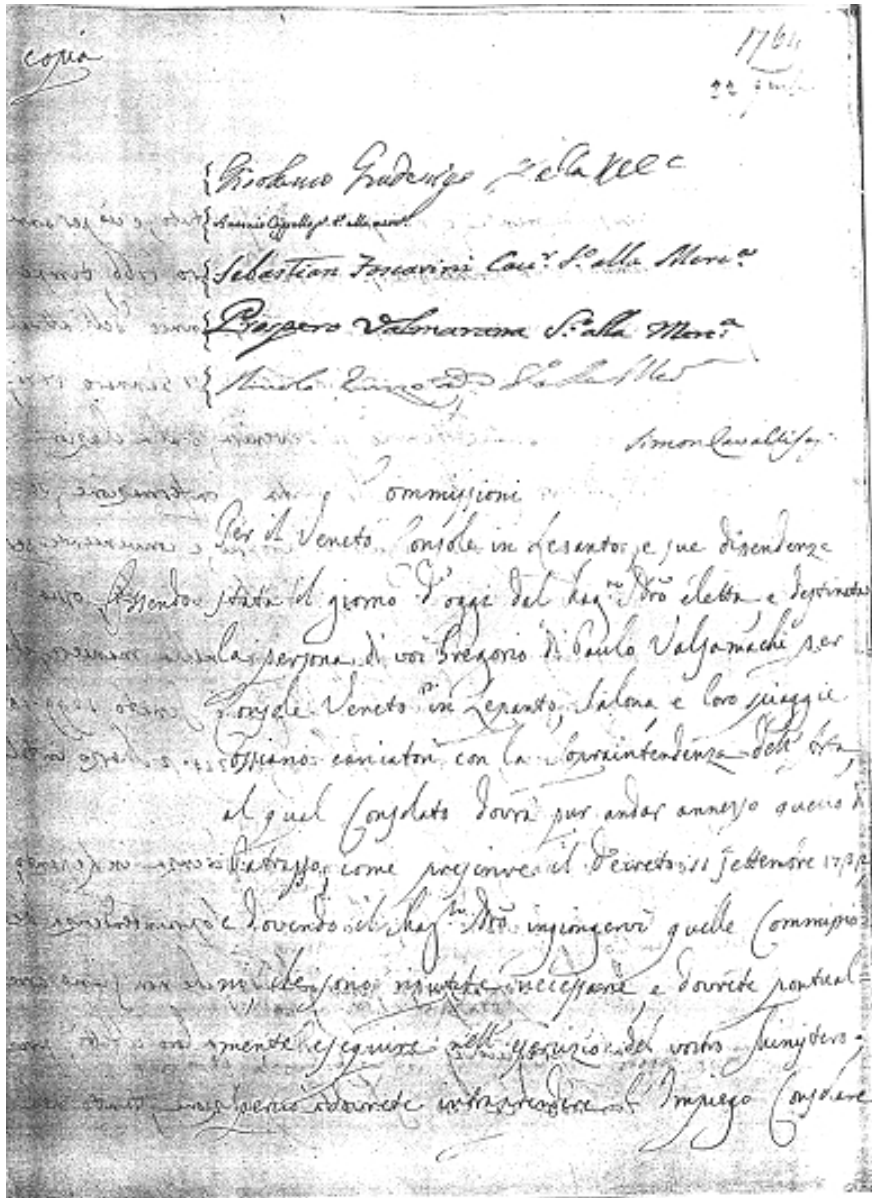 copia
1764
22
Girolamo Gradenigo
Sebastian Foscarini Cav.r S.o alla Merc.a
Prospero Valmarana S.o alla Merc.a
Simon Cavalli
Commissioni
Per il Veneto Console in Lepanto, e sue dipendenze
Essendo stata il giorno d'oggi dal Mag.to N̄ro eletta, e destinata
la persona di voi Gregorio di Paulo Valsamachi per
Console Veneto in Lepanto, Salona e loro spiaggie
con la Sopraintendenza dell' Arta,
al qual Consolato dovrà pur andar annesso quello di
Patrasso, come prescrive il Decreto 11 Settembre
e dovendo il Mag.to N̄ro ingiongervi quelle Commissio
ni che sono riputate necessarie, e dovrete pontual
mente eseguire nell' esercizio del vostro Ministero;
perciò dovrete intraprendere l' Impiego Consolare